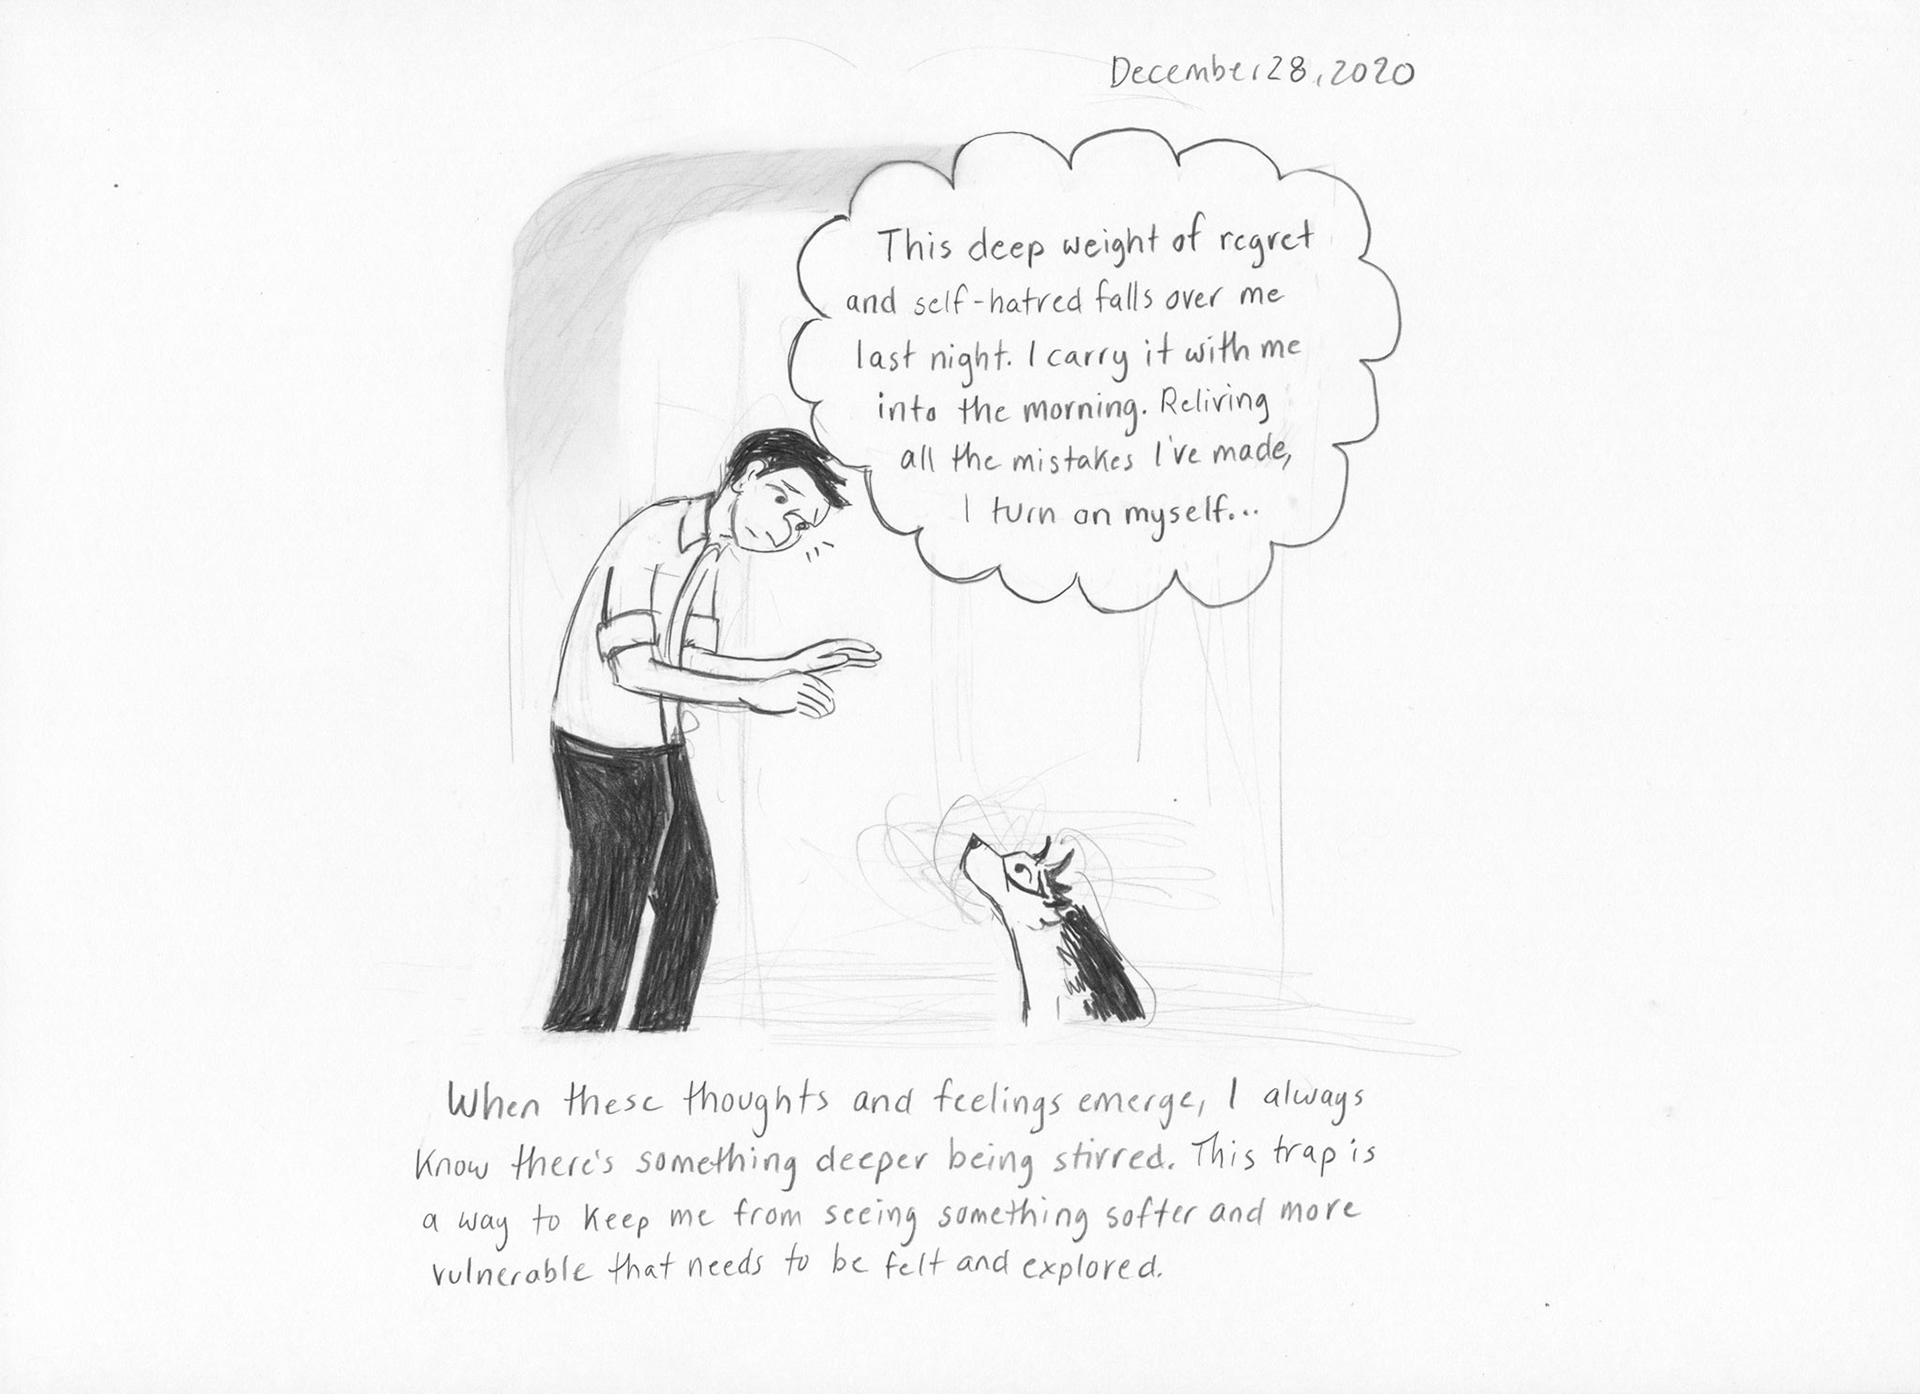 December 28, 2020
This deep weight of regret
and self-hatred falls over me
last night. I carry it with me
into the morning. Reliving
all the mistakes I've made,
I turn on myself...
When these thoughts and feelings emerge, I always
know there's something deeper being stirred. This trap is
a way to keep me from seeing something softer and more
vulnerable that needs to be felt and explored.